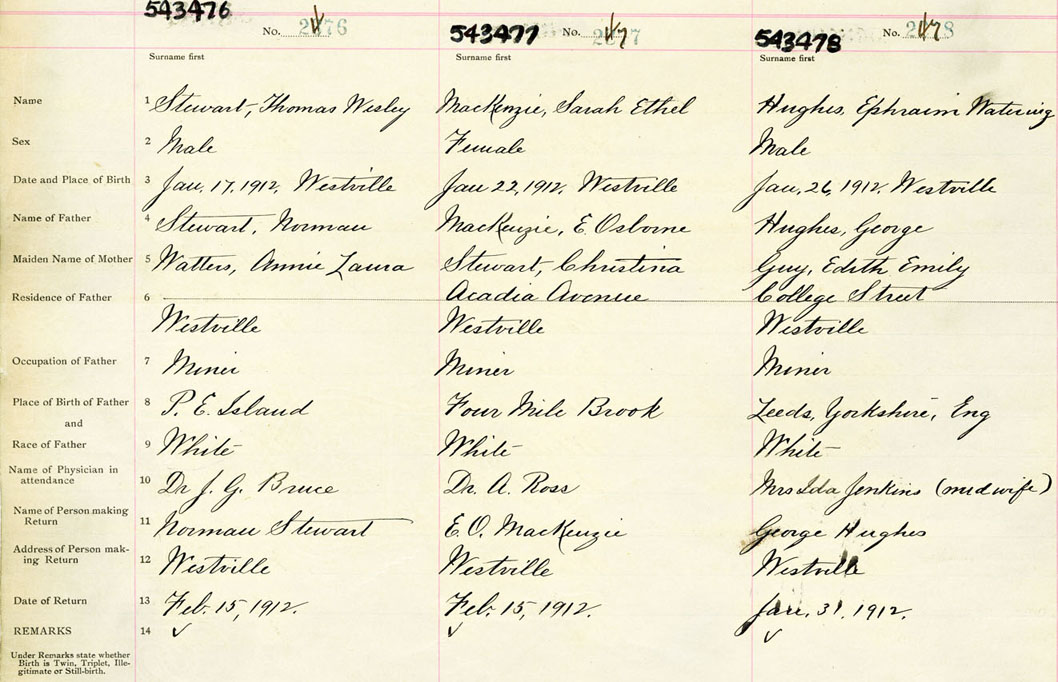 543476 No. 2476 543477 No. 2477 543478 No. 2478
Surname first Surname first Surname first
Name 1 Stewart, Thomas Wesley MacKenzie, Sarah Ethel Hughes, Ephraim Watering
Sex 2 Male Female Male
Date and Place of Birth 3 Jan. 17, 1912, Westville Jan 22, 1912, Westville Jan, 26, 1912, Westville
Name of Father 4 Stewart, Norman MacKenzie, E. Osborne Hughes, George
Maiden Name of Mother 5 Watters, Annie Laura Stewart, Christina Guy, Edith Emily
Residence of Father 6 Acadia Avenue College Street
Westville Westville Westville
Occupation of Father 7 Miner Miner Miner
Place of Birth of Father 8 P. E. Island Four Mile Brook Leeds, Yorkshire, Eng
and
Race of Father 9 White White White
Name of Physician in
attendance 10 Dr J. G. Bruce Dr. A. Ross Mrs Ida Jenkins (midwife)
Name of Person making
Return 11 Norman Stewart E. O. MacKenzie George Hughes
Address of Person mak-
ing Return 12 Westville Westville Westville
Date of Return 13 Feb. 15, 1912. Feb. 15, 1912. Jan. 31, 1912.
REMARKS 14 ✓ ✓ ✓
Under Remarks state whether
Birth is Twin, Triplet, Ille-
gitimate or Still-birth.